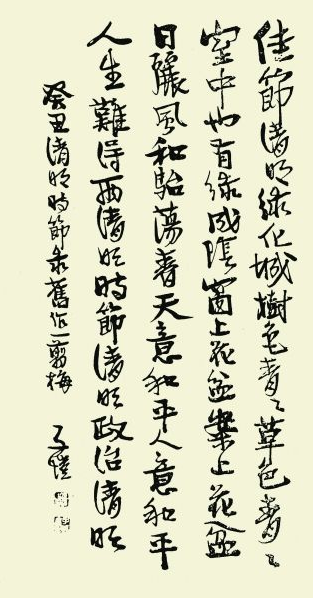 佳節清明綠化城樹色青々草色青々
室中也有綠成陰窗上花盆案上花盆
日麗風和駘蕩春天意和平人意和平
人生難得兩清明時節清明政治清明
癸丑清明時節錄舊作一剪梅 子愷